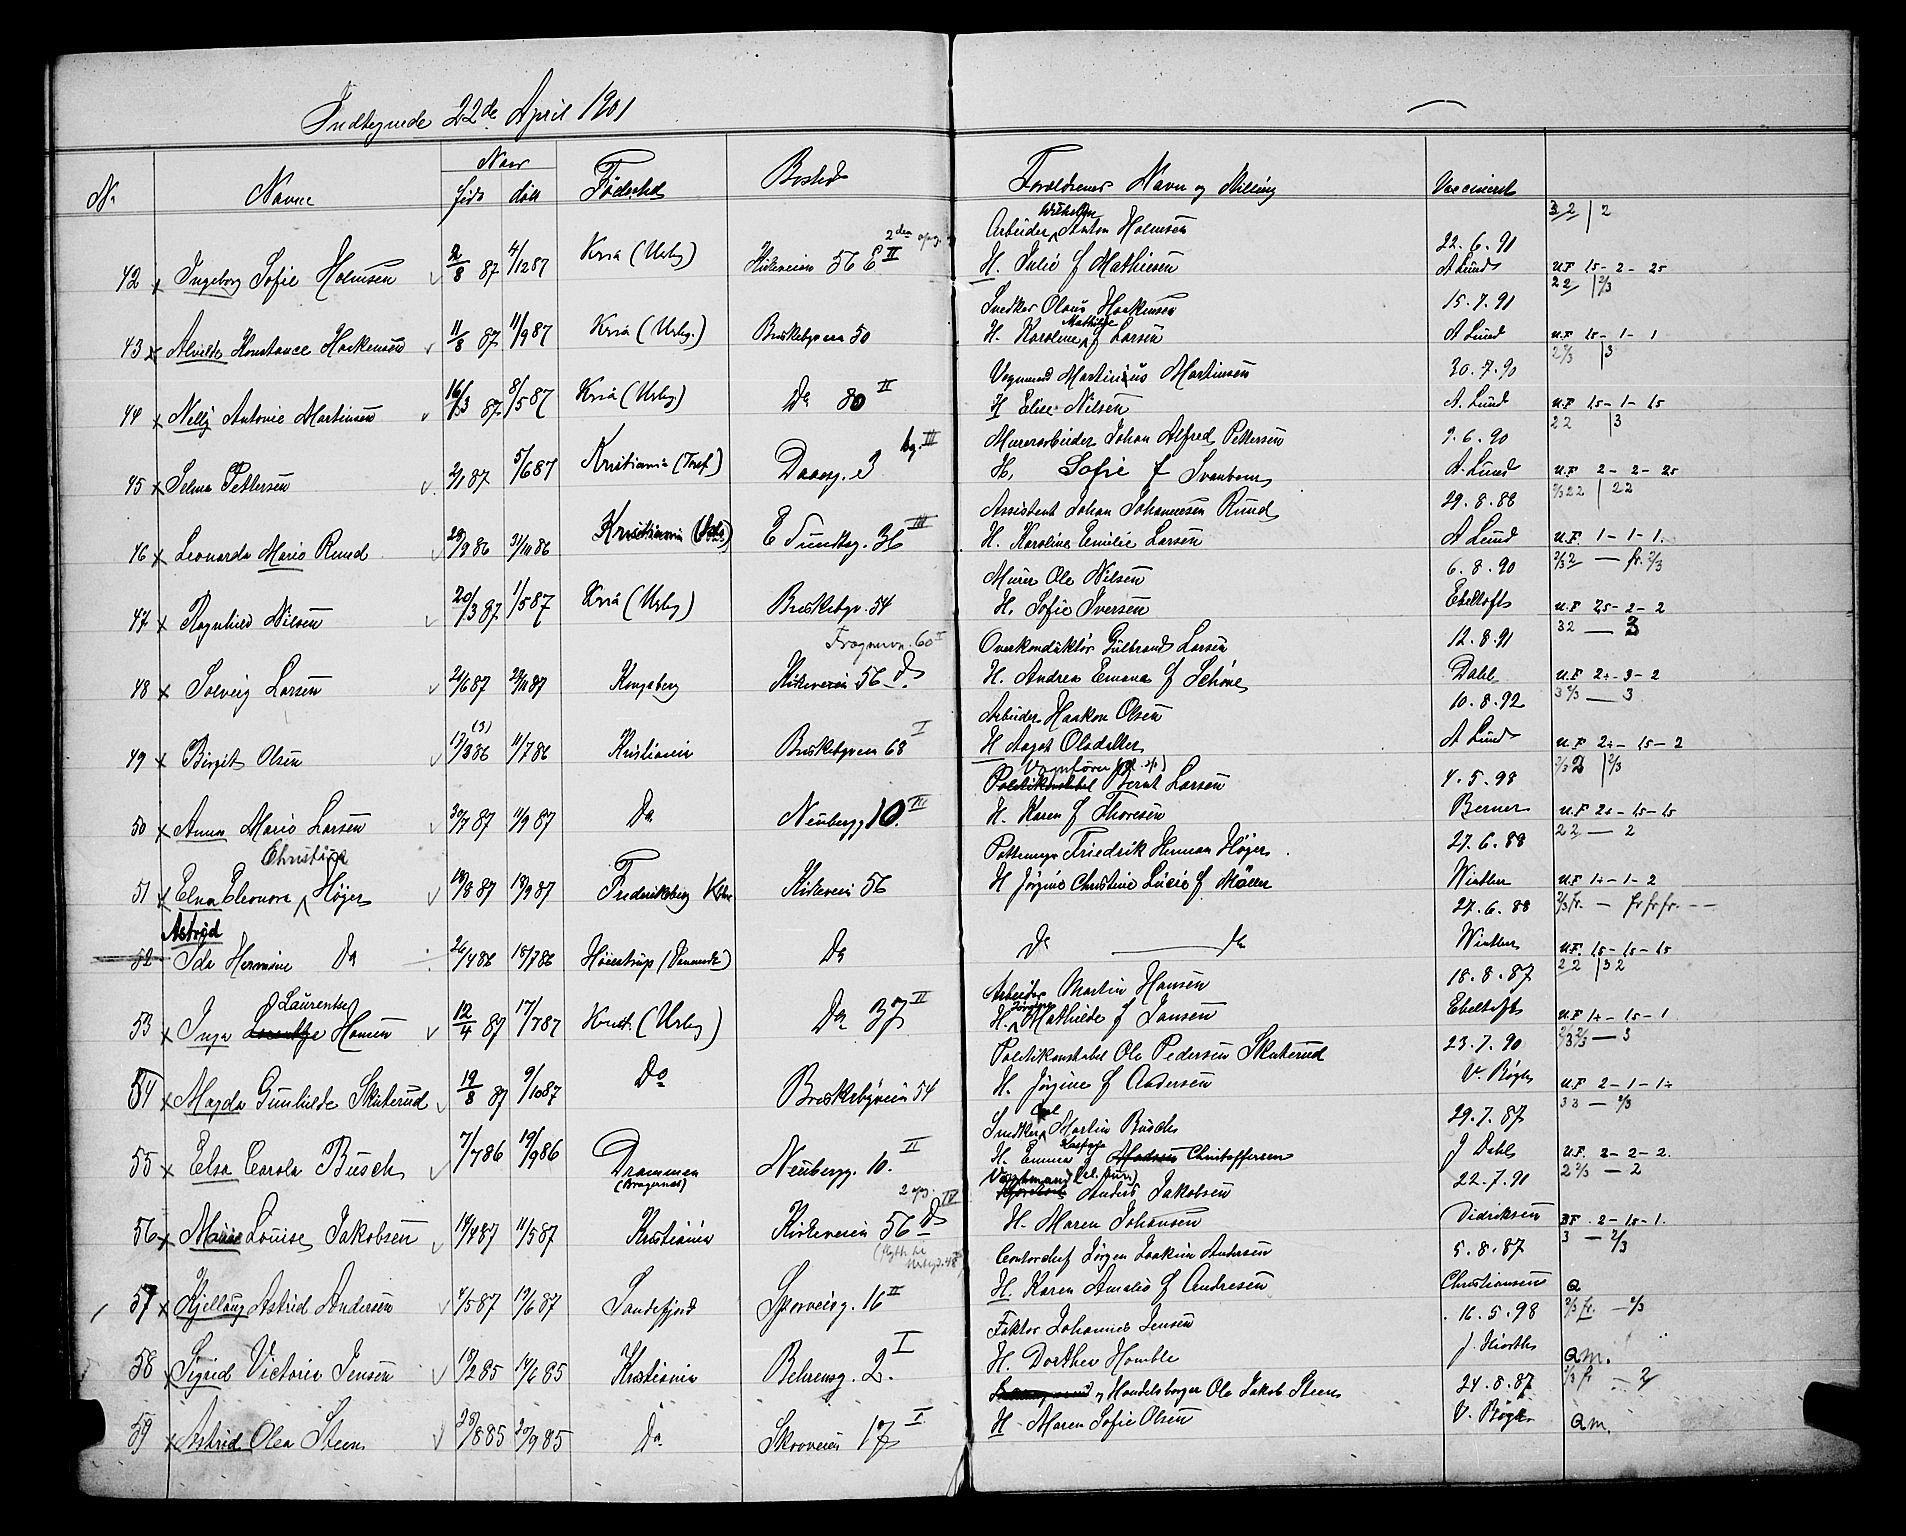 Indtegnede 22de April 1901
No Navne Naar Födested Bosted Foreldrenes Navn og Stilling Vaccineret
født döbt
Arbeider Wilhelm Anton Holmsen 32 | 2
42 x Ingeborg Sofie Holmsen 2/8 87 4/12 87 Kria (Urbg) Kirkeveien 56 E II 2den opg. H. Julie f Mathiesen 22.6.91 A Lund U.F 15 - 2 - 25
Snedker Olaus Haakensen 22 | 2/3
43 x Alvilde Konstance Haakensen 11/8 87 11/9 87 Kria (Urbg.) Briskebyveien 50 H. Karoline Mathilde f Larsen 15.7.91 A Lund U.F 15 - 1 - 1
Vognmand Martinius Martinsen 2 2/3 | 3
44 x Nelly Antonie Martinsen 16/3 87 8/5 87 Kria (Urbg) Do 80 II H Elise Nilsen 30.7.90 A. Lund U.F 15 - 1 - 15
Murerarbeider Johan Alfred Pettersen 22 | 3
45 x Selma Pettersen 2/1 87 5/6 87 Kristiania Daasg. 3 bg. III H. Sofie f Svanbom 9.6.90 A. Lund U.F 2 - 2 - 25
Assistent Johan Johannesen Ruud 2/3 22 | 22
46 x Leonarda Marie Ruud 28/9 86 31/10 86 Kristiania E Sundtsg. 36 III H. Karoline Emilie Larsen 29.8.88 A Lund U.F 1 - 1 - 1.
Murer Ole Nilsen 2/3 2 — fr. 2/3
47 x Ragnhild Nilsen 20/3 87 1/5 87 Kria (Urbg) Briskebyv. 54 H. Sofie Iversen 6.8.90 Ebeltoft U.F 25 - 2 - 2
Frognerv. 60 I Overkonduktör Gulbrand Larsen 32 — 3
48 x Solveig Larsen 21/6 87 27/11 87 Kongsberg Kirkeveien 56 D H. Andrea Emma f Schöne 12.8.91 Dahl U.F 2+ - 3 - 2
Arbeider Haakon Olsen 3 2/3 — 3
49 x Birgit Olsen 13/3 (3) 86 11/7 86 Kristiania Briskebyveien 68 I H Aagot Olsdatter 10.8.92 A Lund U.F 2+ - 15 - 2
Vognfører Politikonstabel Bernt Larsen 2/3 2 | 2/3
50 x Anna Marie Larsen 30/7 87 11/9 87 Do Neubergg 10 III H. Karen f Thoresen 4.5.98 Berner U.F 2+ - 15 - 15
Christina Pottemager Friedrik Herman Höyer 22 — 2
51 x Elna Eleonora Höyer 14/8 87 18/9 87 Frederiksberg Kbhv Kirkevei 56 H Jörgine Christine Lucie f Möller 27.6.88 Winther U.F 1+ - 1 - 2
Astrid 2/3 fr. — fr fr fr. --
52 Ida Hermine Do 26/4 86 18/7 86 Höierstrup (Danmark) Do Do — Do 27.6.88 Winther U.F. 15 - 15 - 15
Arbeider Martin Hansen 22 | 32
53 x Inga Laurentze Hansen 12/4 87 17/7 87 Krist. (Urbg) Do 37 II H. Jörgine Mathilde f Jansen 18.8.87 Ebeltoft U.F 1+ - 15 - 1
Politikonstabel Ole Pedersen Skuterud 2/3 2/3 — 3
54 x Magda Gunhilde Skuterud 19/8 87 9/10 87 Do Briskebyveien 54 H. Jörgine f Andersen 23.7.90 V. Bögh U.F 2 - 1 - 1+
Snedker Carl Martin Busch 33 — 2/3
55 x Elsa Carola Busch 7/7 86 19/9 86 Drammen (Bragernes) Neubergg. 10. II H. Emma f Christoffersen 29.7.87 J Dahl U.F. 2 - 2 - 2.
Vagtmand Anders Jakobsen 2 2/3 — 2
56 x Marie Louise Jakobsen 14/4 87 11/5 87 Kristiania Kirkeveien 56 D 2 opg. IV H. Maren Johansen 22.7.91 Didriksen U.F. 2 - 15 - 1.
(flytt til Urbgd. 48) Contorchef Jörgen Joakim Andersen 3 — 2/3
57 x Kjellaug Astrid Andersen 4/5 87 19/6 87 Sandefjord Sporveisg. 16 II H. Karen Amalie f Andresen 5.8.87 Christiansen Q
Faktor Johannes Jensen 2/3 fr. — 2/3
58 x Sigrid Victoria Jensen 18/2 85 14/6 85 Kristiania Behrensg. 2. I H. Dorthea Homble 16.5.98 J. Hiorth Qm.
og Handelsborger Ole Jakob Steen 2/3 fr — 2
59 x Astrid Olea Steen 28/8 85 20/9 85 Do Skovveien 17 I H. Maren Sofie Olsen 24.8.87 V. Bögh Qm.